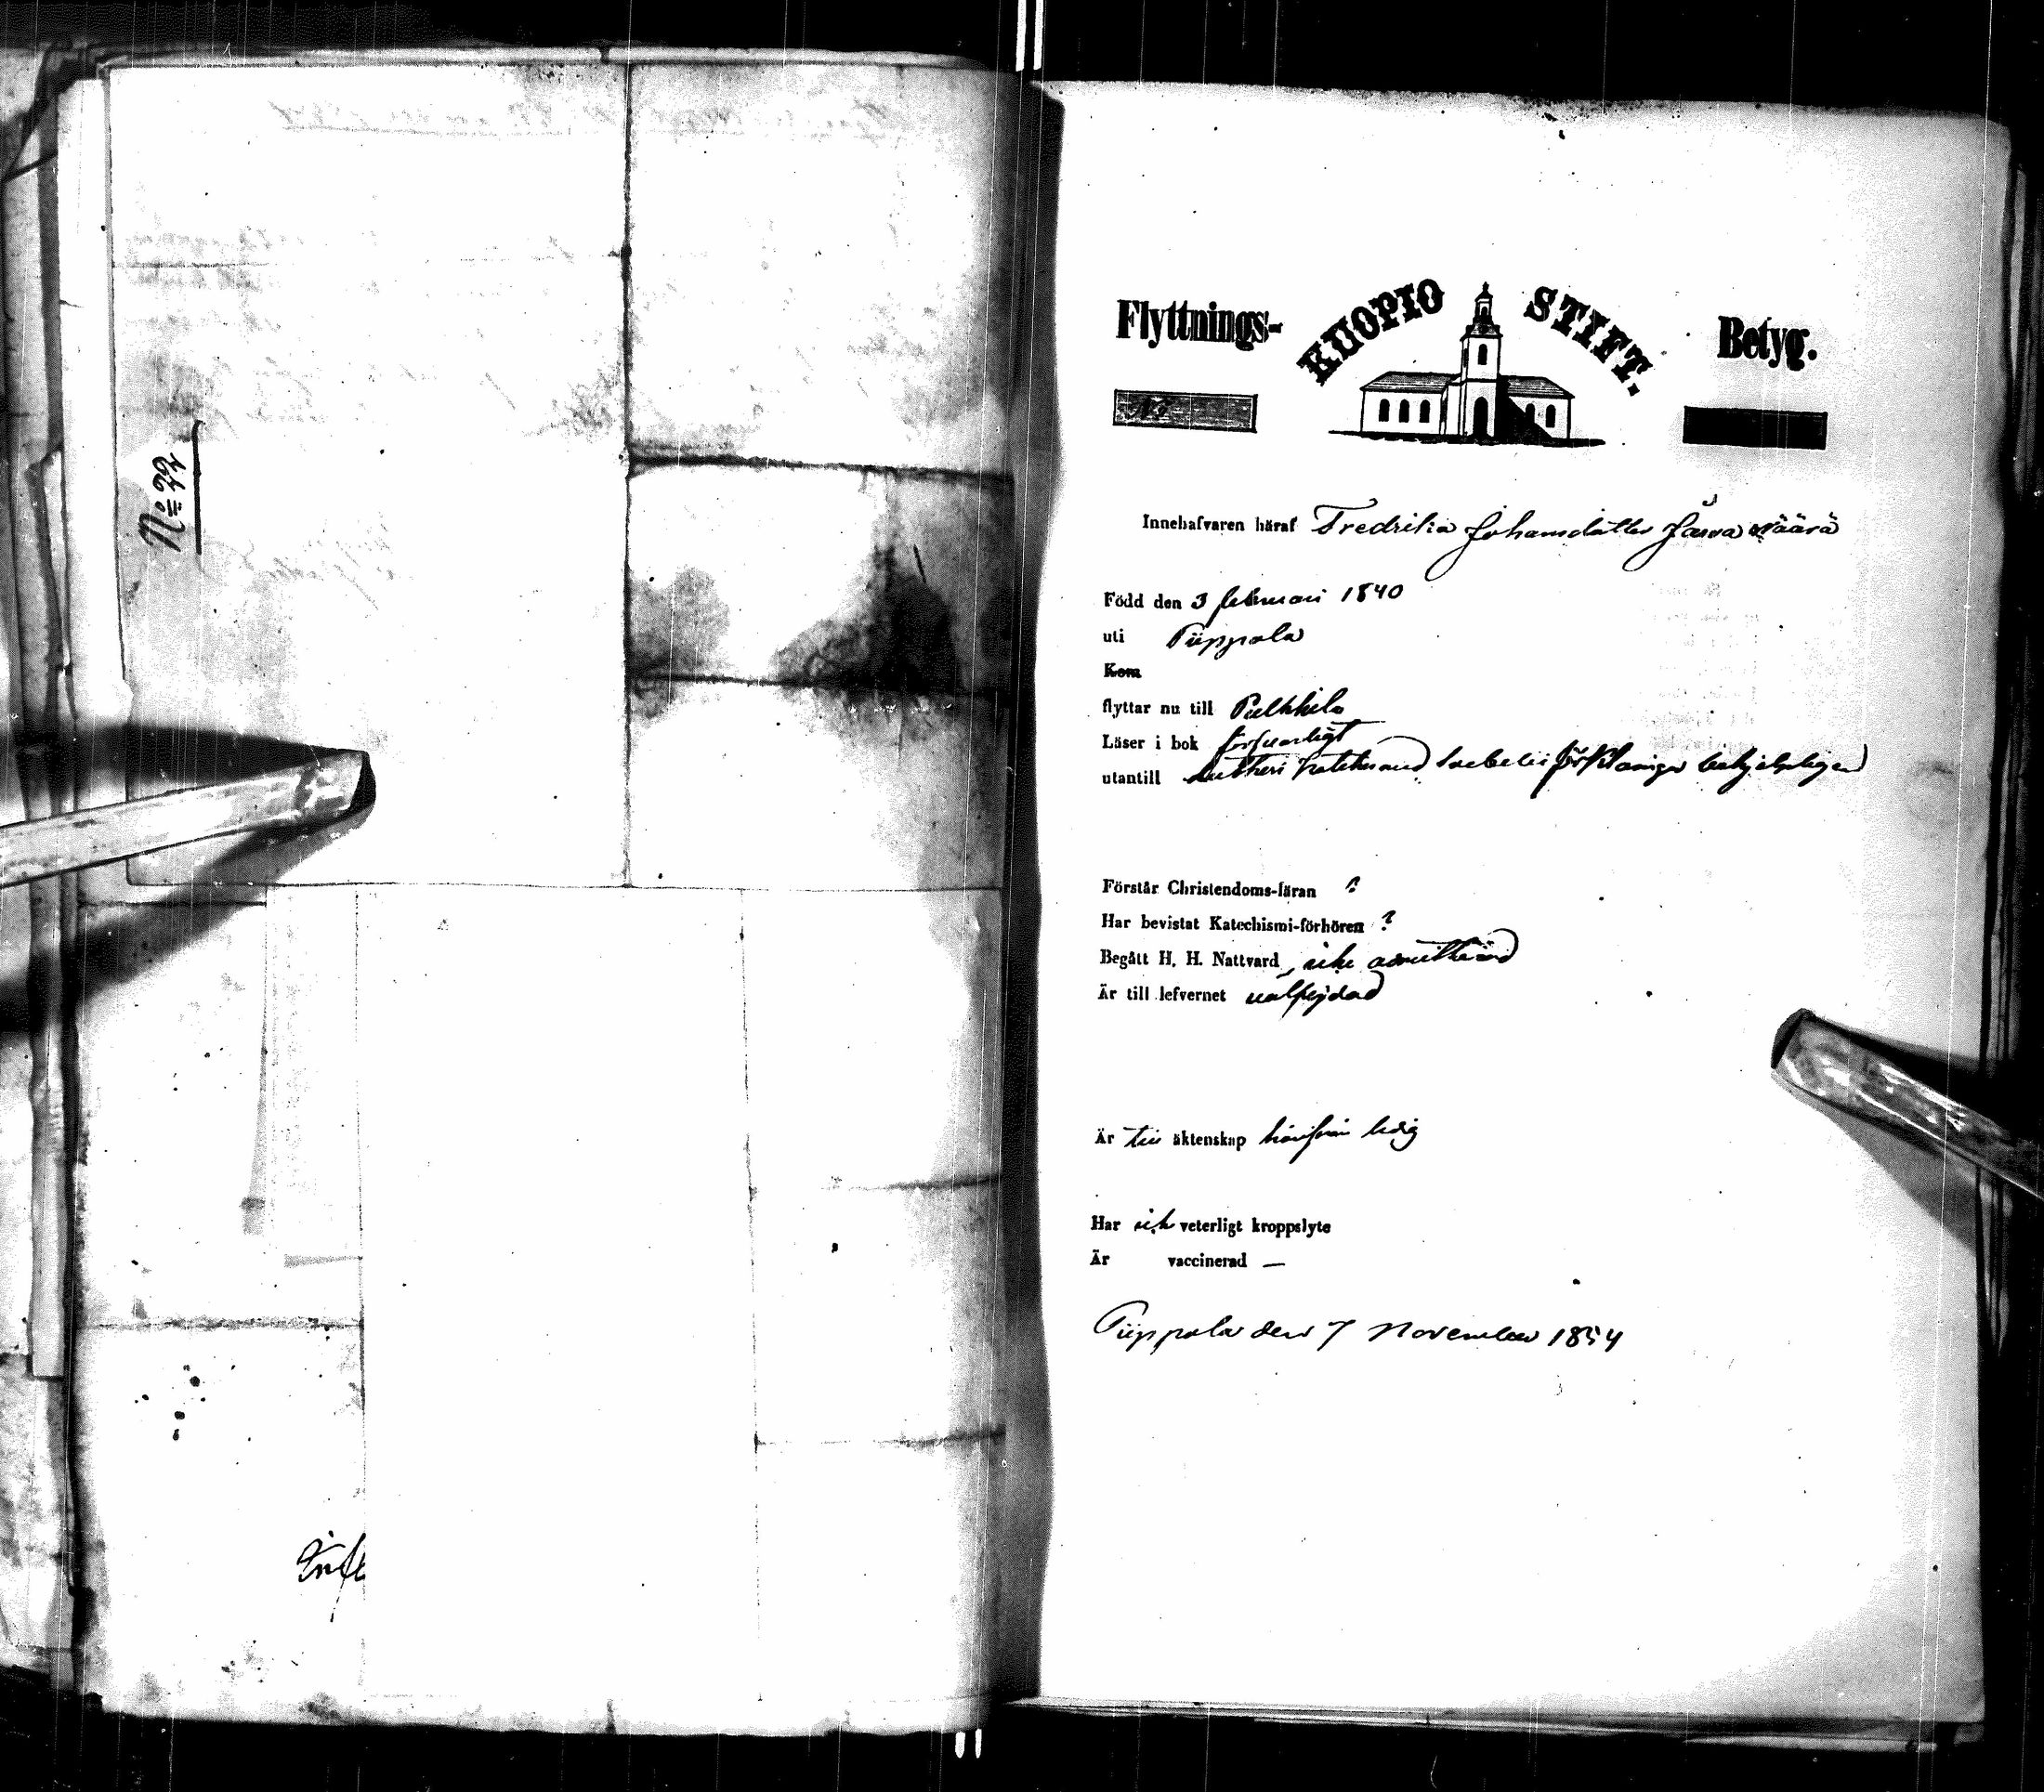 No 22
Flyttnings- KUOPIO STIFT. Betyg.
No
Innehafvaren häraf Fredrika Johansdotter
Född den 3 februari 1840
uti Piippola
Kom
flyttar nu till Pulkkila
Läser i bok försvarligt
utantill Lutheri förklaringar
Förstår Christendoms-läran ?
Har bevistat Katechismi-förhören ?
Begått H. H. Nattvard, icke admitterad
Är till lefvernet välfrejdad
Är till äktenskap härifrån ledig
Har ick veterligt kroppslyte
Är vaccinerad —
Piippola den 7 November 1854